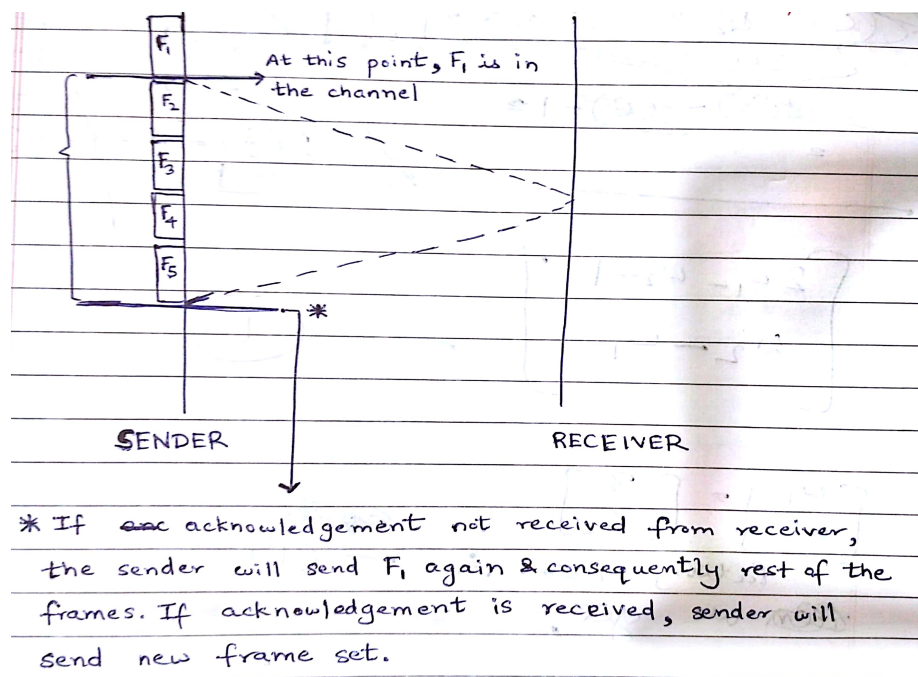 F₁
At this point, F₁ is in
the channel
F₂
F₃
F₄
F₅
*
SENDER
RECEIVER
* If acknowledgement not received from receiver,
the sender will send F₁ again & consequently rest of the
frames. If acknowledgement is received, sender will
send new frame set.